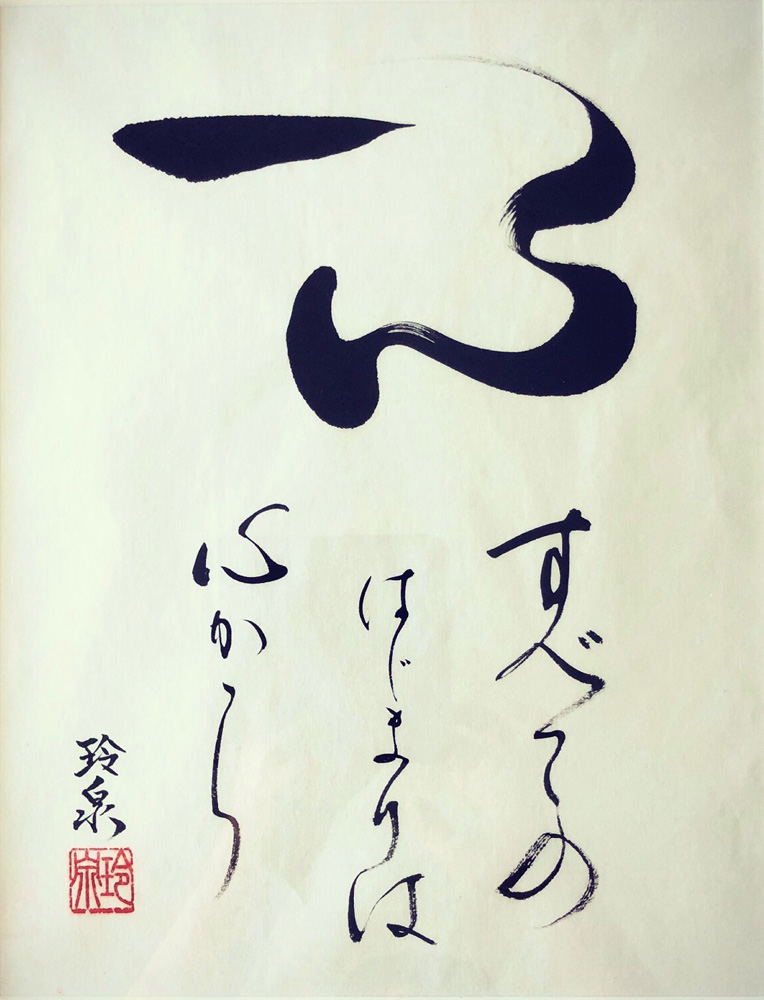 すべての
はじまりは
心から
玲泉
玲泉